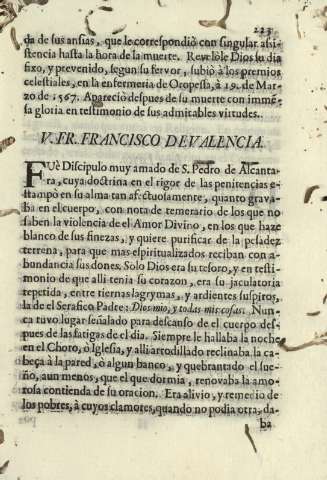 223
da de sus ansias, que le correspondiò con singular asi-
stencia hasta la hora de la muerte. Revelòle Dios su dia
fixo, y prevenido, segun su fervor, subiò à los premios
celestiales, en la enfermeria de Oropessa, à 19. de Mar-
zo de 1567. Apareciò despues de su muerte con immē-
sa gloria en testimonio de sus admirables virtudes.
V. FR. FRANCISCO DE VALENCIA.
FUè Discipulo muy amado de S. Pedro de Alcanta-
ra, cuya doctrina en el rigor de las penitencias e-
stampò en su alma tan afectuosamente, quanto grava-
ba en el cuerpo, con nota de temerario de los que no
saben la violencia del Amor Divino, en los que haze
blanco de sus finezas, y quiere purificar de la pesadez
terrena, para que mas espiritualizados reciban con a-
bundancia sus dones. Solo Dios era su tesoro, y en testi-
monio de que alli tenia su corazon, era su jaculatoria
repetida, entre tiernas lagrymas, y ardientes suspiros,
la de el Serafico Padre: Dios mio, y todas mis cosas. Nun-
ca tuvo lugar señalado para descanso de el cuerpo des-
pues de las fatigas de el dia. Siempre le hallaba la noche
en el Choro, ò Iglesia, y alli arrodillado reclinaba la ca-
beça à la pared, ò algun banco, y quebrantado el sue-
ño, aun menos, que el que dormia, renovaba la amo-
rosa contienda de su oracion. Era alivio, y remedio de
los pobres, à cuyos clamores, quando no podia otra, da-
ba